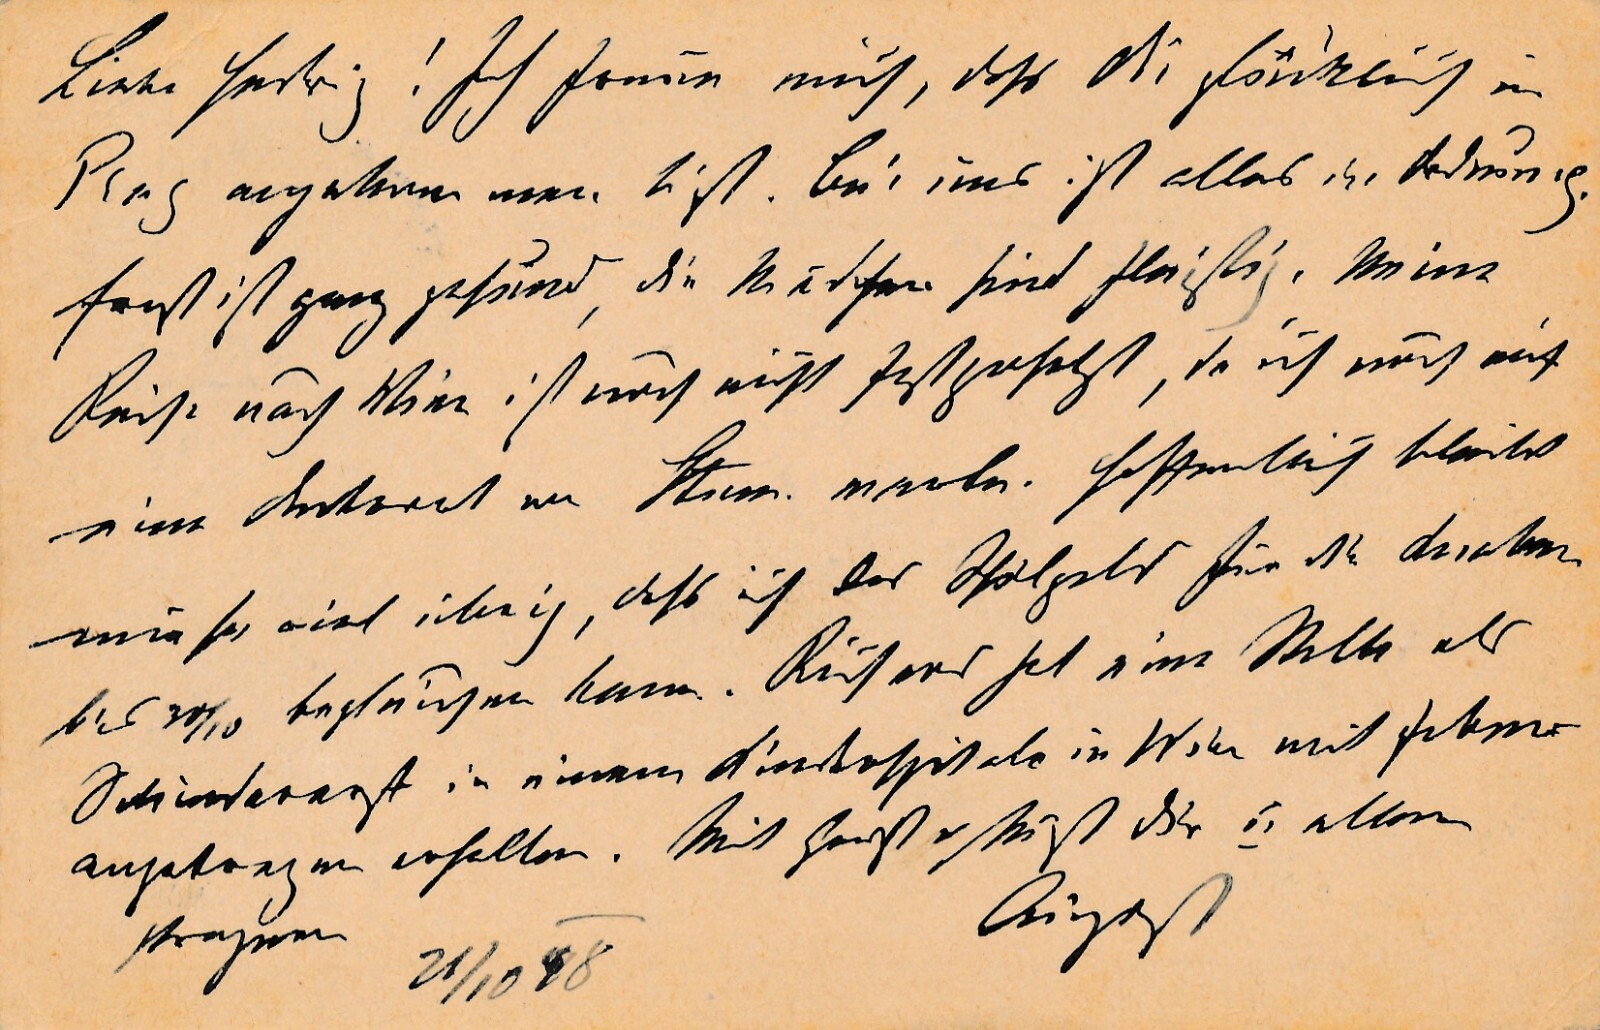 Liebe Hedwig! Ich freue mich, daß Du glücklich in
Prag angekommen bist. Bei uns ist alles in Ordnung.
Ernst ist ganz gesund, die Mädchen sind fleißig. Meine
Reise nach Wien ist noch nicht festgesetzt, da ich noch auf
eine Antwort von warte. Hoffentlich bleibt
mir so viel übrig, daß ich das Schulgeld für die
bis 30/10 begleichen kann. Richard hat eine Stelle als
in einem Kinderspitale in Wien mit
angetragen erhalten. Mit Gruß u. Kuß Dir u. allen
Pragern
21/10 48
August